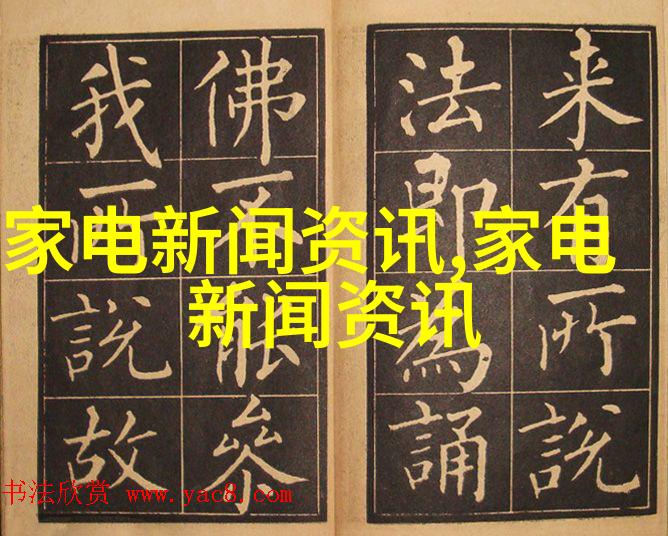 来有所說
法即為誦
佛不能叅
我所說故
家电新闻资讯,家电
新闻资讯
书法欣赏 www.yac8.com